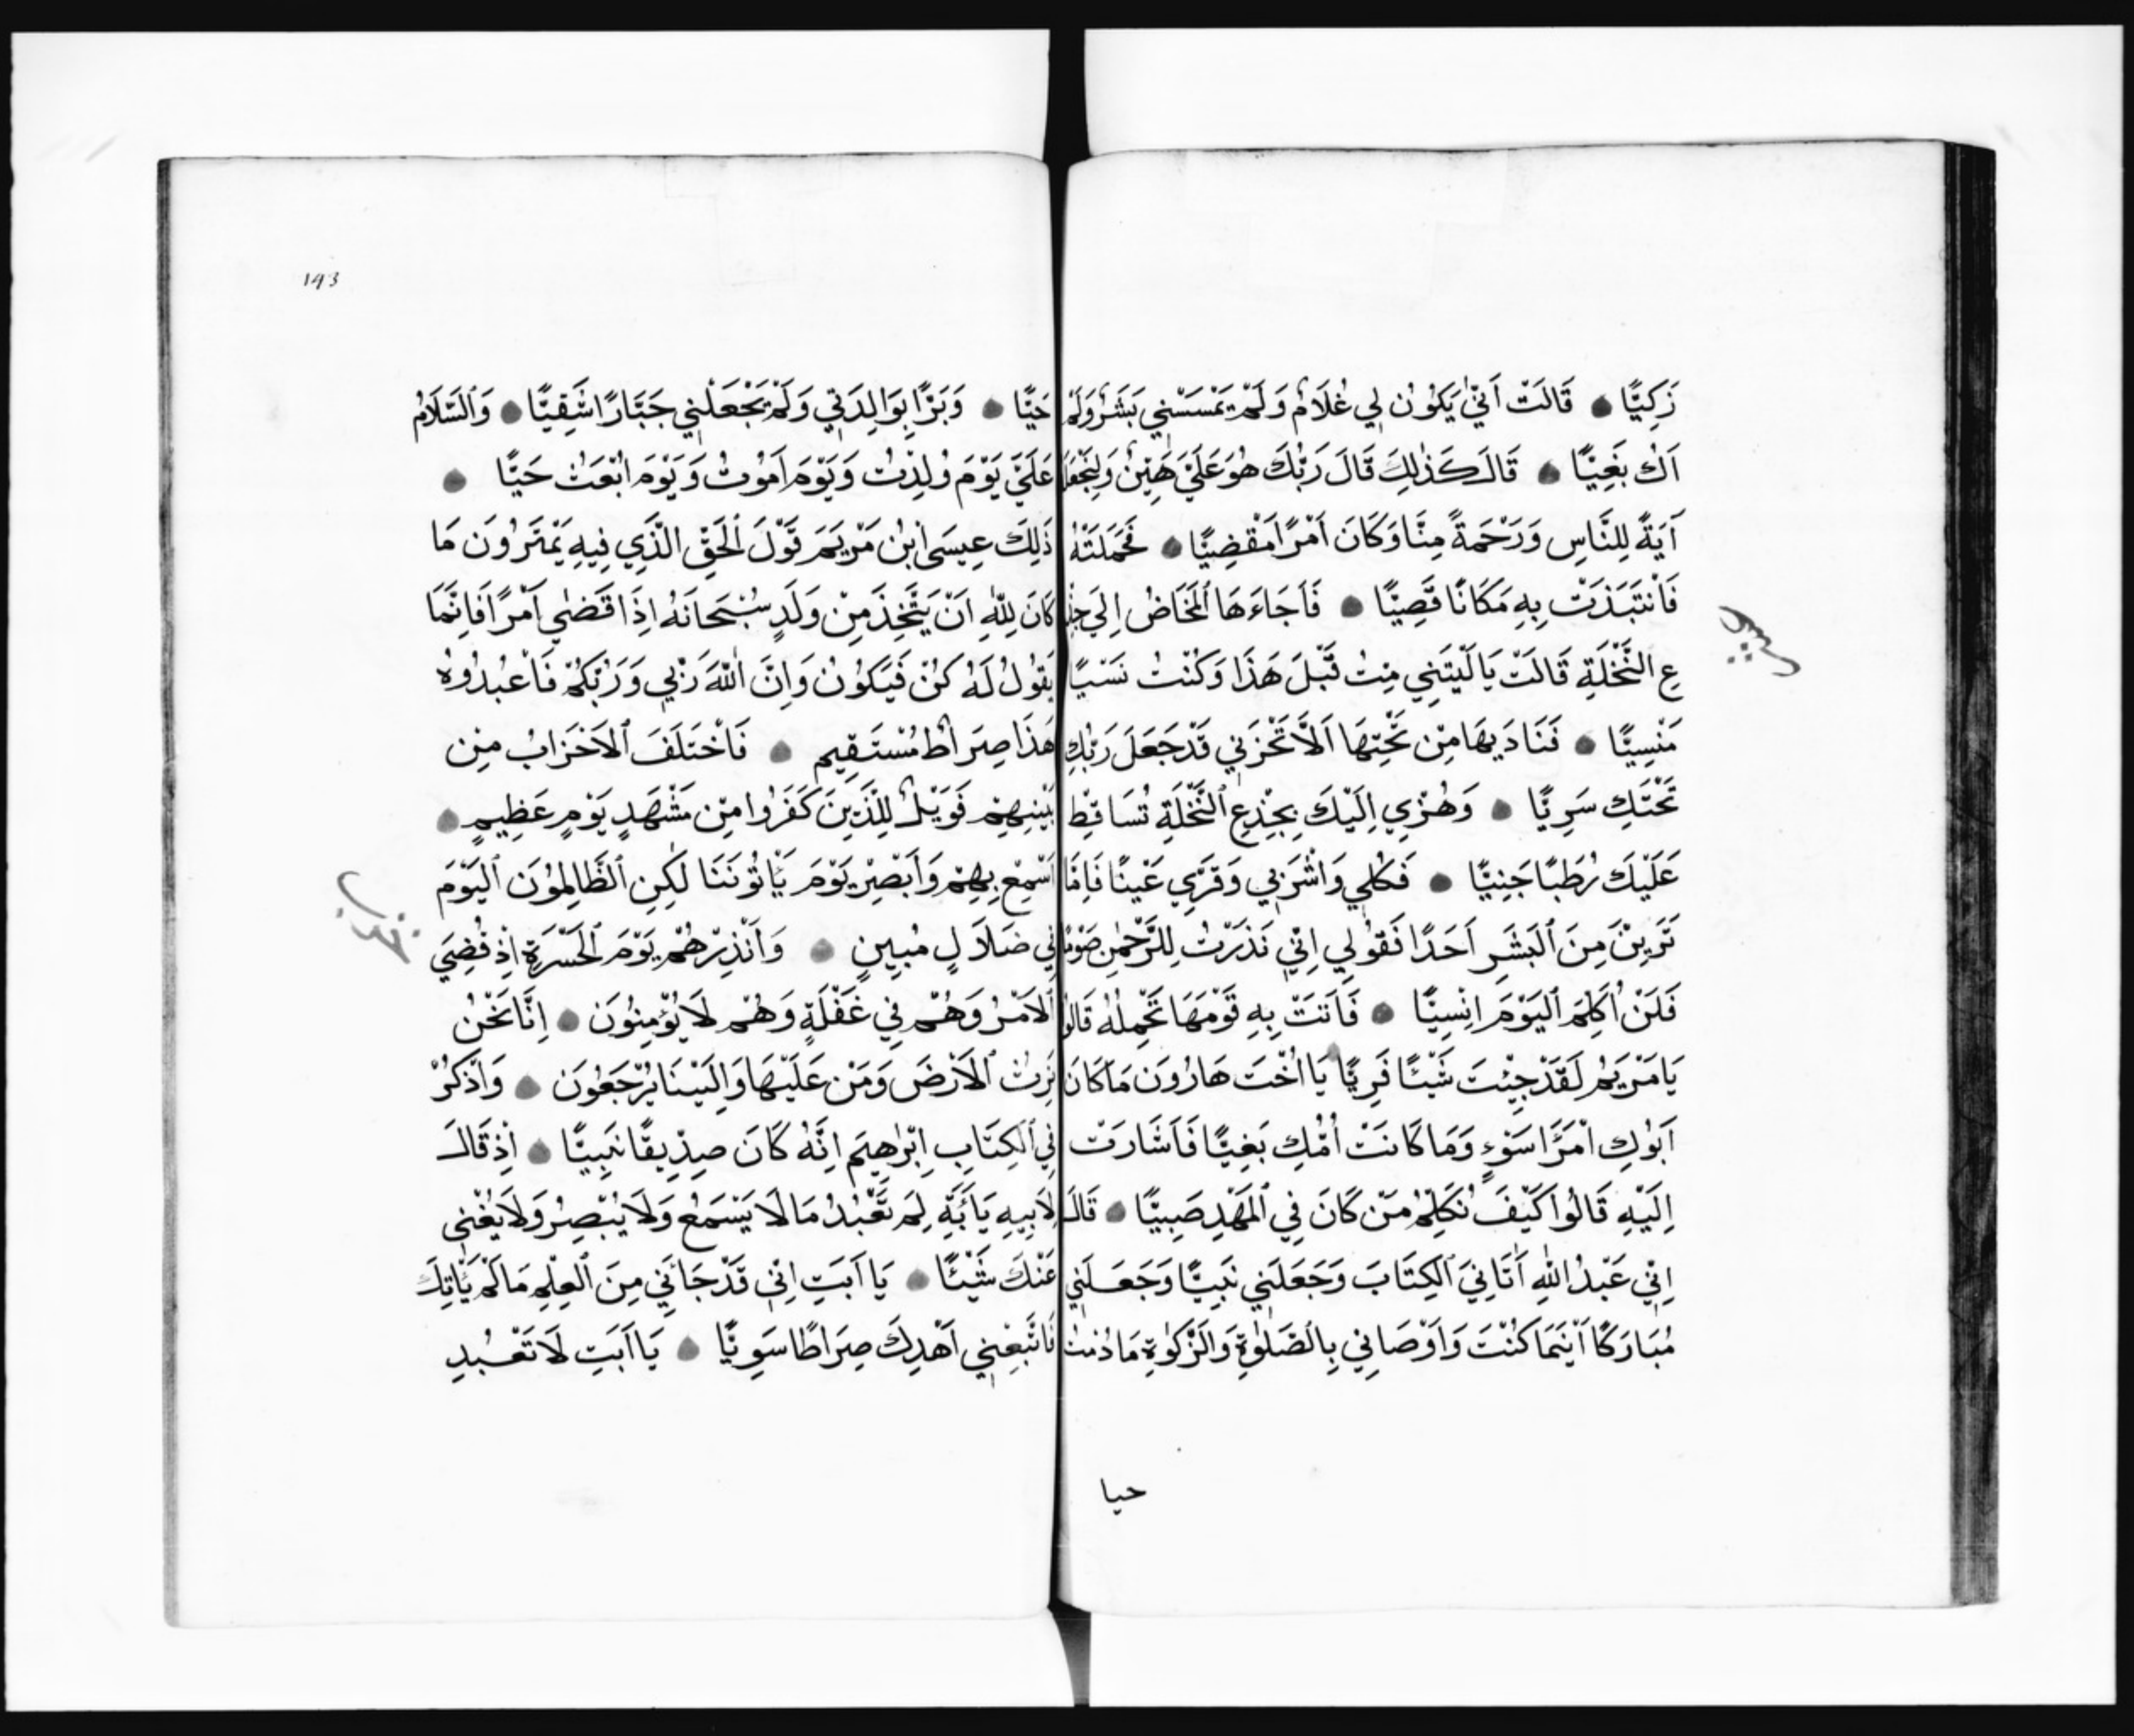 زَكِيًّا ● قَالَتْ اَنّٰي يَكُوْنُ لِي غُلَامٌ وَلَمْ يَمْسَسْنِي بَشَرٌ وَلَمْ
اَكُ بَغِيًّا ● قَالَ كَذٰلِكَ قَالَ رَبُّكَ هُوَ عَلَيَّ هَيِّنٌ وَلِنَجْعَلَهُ
آيَةً لِلنَّاسِ وَرَحْمَةً مِنَّا وَكَانَ اَمْرًا مَقْضِيًّا ● فَحَمَلَتْهُ
فَانْتَبَذَتْ بِهِ مَكَانًا قَصِيًّا ● فَاَجَاءَهَا ٱلْمَخَاضُ اِلَي جِذْ
عِ النَّخْلَةِ قَالَتْ يَا لَيْتَنِي مِتُ قَبْلَ هَذَا وَكُنْتُ نَسْيًا
مَنْسِيًّا ● فَنَادَيهَا مِنْ تَحْتِهَا اَلَّا تَحْزَنِي قَدْ جَعَلَ رَبُّكِ
تَحْتَكِ سَرِيًّا ● وَهُزِّي اِلَيْكَ بِجِذْعِ ٱلنَّخْلَةِ تُسَاقِطْ
عَلَيْكَ رُطَبًا جَنِيًّا ● فَكُلِي وَاشْرَبِي وَقَرِّي عَيْنًا فَاِمَّا
تَرَيِنَّ مِنَ ٱلْبَشَرِ اَحَدًا فَقُولِي اِنِّي نَذَرْتُ لِلرَّحْمٰنِ صَوْمًا
فَلَنْ اُكَلِّمَ ٱلْيَوْمَ اِنْسِيًّا ● فَاَتَتْ بِهِ قَوْمَهَا تَحْمِلُهُ قَالُوا
يَا مَرْيَمُ لَقَدْ جِئْتَ شَيْئًا فَرِيًّا يَا اُخْتَ هَارُونَ مَا كَانَ
اَبُوْكِ امْرَاَ سَوْءٍ وَمَا كَانَتْ اُمُّكِ بَغِيًّا فَاَشَارَتْ
اِلَيْهِ قَالُوا كَيْفَ نُكَلِّمُ مَنْ كَانَ فِي ٱلْمَهْدِ صَبِيًّا ● قَالَ
اِنِّي عَبْدُ اللّٰهِ اَتَانِيَ ٱلْكِتَابَ وَجَعَلَنِي نَبِيًّا وَجَعَلَنِي
مُبَارَكًا اَيْنَمَا كُنْتَ وَاَوْصَانِي بِالصَّلٰوةِ وَالزَّكٰوةِ مَا دُمْتُ
حيا
143
حَيًّا ● وَبَرًّا بِوَالِدَتِي وَلَمْ يَجْعَلْنِي جَبَّارًا شَقِيًّا ● وَٱلسَّلَامُ
عَلَيَّ يَوْمَ وُلِدْتُ وَيَوْمَ اَمُوْتُ وَيَوْمَ اُبْعَثُ حَيًّا ●
ذَلِكَ عِيسَى ابْنُ مَرْيَمَ قَوْلَ ٱلْحَقِّ الَّذِي فِيهِ يَمْتَرُونَ مَا
كَانَ لِلّٰهِ اَنْ يَتَّخِذَ مِنْ وَلَدٍ سُبْحَانَهُ اِذَا قَضٰي اَمْرًا فَاِنَّمَا
يَقُوْلُ لَهُ كُنْ فَيَكُوْنُ وَاِنَّ اللّٰهَ رَبِّي وَرَبُّكُمْ فَاعْبُدُوْهُ
هَذَا صِرَاطٌ مُسْتَقِيم ● فَاخْتَلَفَ ٱلْاَحْزَابُ مِنْ
بَيْنِهِمْ فَوَيْلٌ لِلَّذِينَ كَفَرُوا مِنْ مَشْهَدِ يَوْمٍ عَظِيمٍ ●
اَسْمِعْ بِهِمْ وَاَبْصِرْ يَوْمَ يَأْتُونَنَا لٰكِنِ ٱلظَّالِمُوْنَ ٱلْيَوْمَ
فِي ضَلَالٍ مُبِينٍ ● وَاَنْذِرْهُمْ يَوْمَ ٱلْحَسْرَةِ اِذْ قُضِيَ
ٱلْاَمْرُ وَهُمْ فِي غَفْلَةٍ وَهُمْ لَا يُؤْمِنُوْنَ ● اِنَّا نَحْنُ
نَرِثُ ٱلْاَرْضَ وَمَنْ عَلَيْهَا وَاِلَيْنَا يُرْجَعُوْنَ ● وَاذْكُرْ
فِي ٱلْكِتَابِ اِبْرٰهِيمَ اِنَّهُ كَانَ صِدِّيقًا نَبِيًّا ● اِذْ قَالَ
لِاَبِيهِ يَا اَبَتِ لِمَ تَعْبُدُ مَا لَا يَسْمَعُ وَلَا يُبْصِرُ وَلَا يُغْنِي
عَنْكَ شَيْئًا ● يَا اَبَتِ اِنِّي قَدْ جَائَنِي مِنَ ٱلْعِلْمِ مَا لَمْ يَأْتِكَ
فَاتَّبِعْنِي اَهْدِكَ صِرَاطًا سَوِيًّا ● يَا اَبَتِ لَا تَعْبُدِ